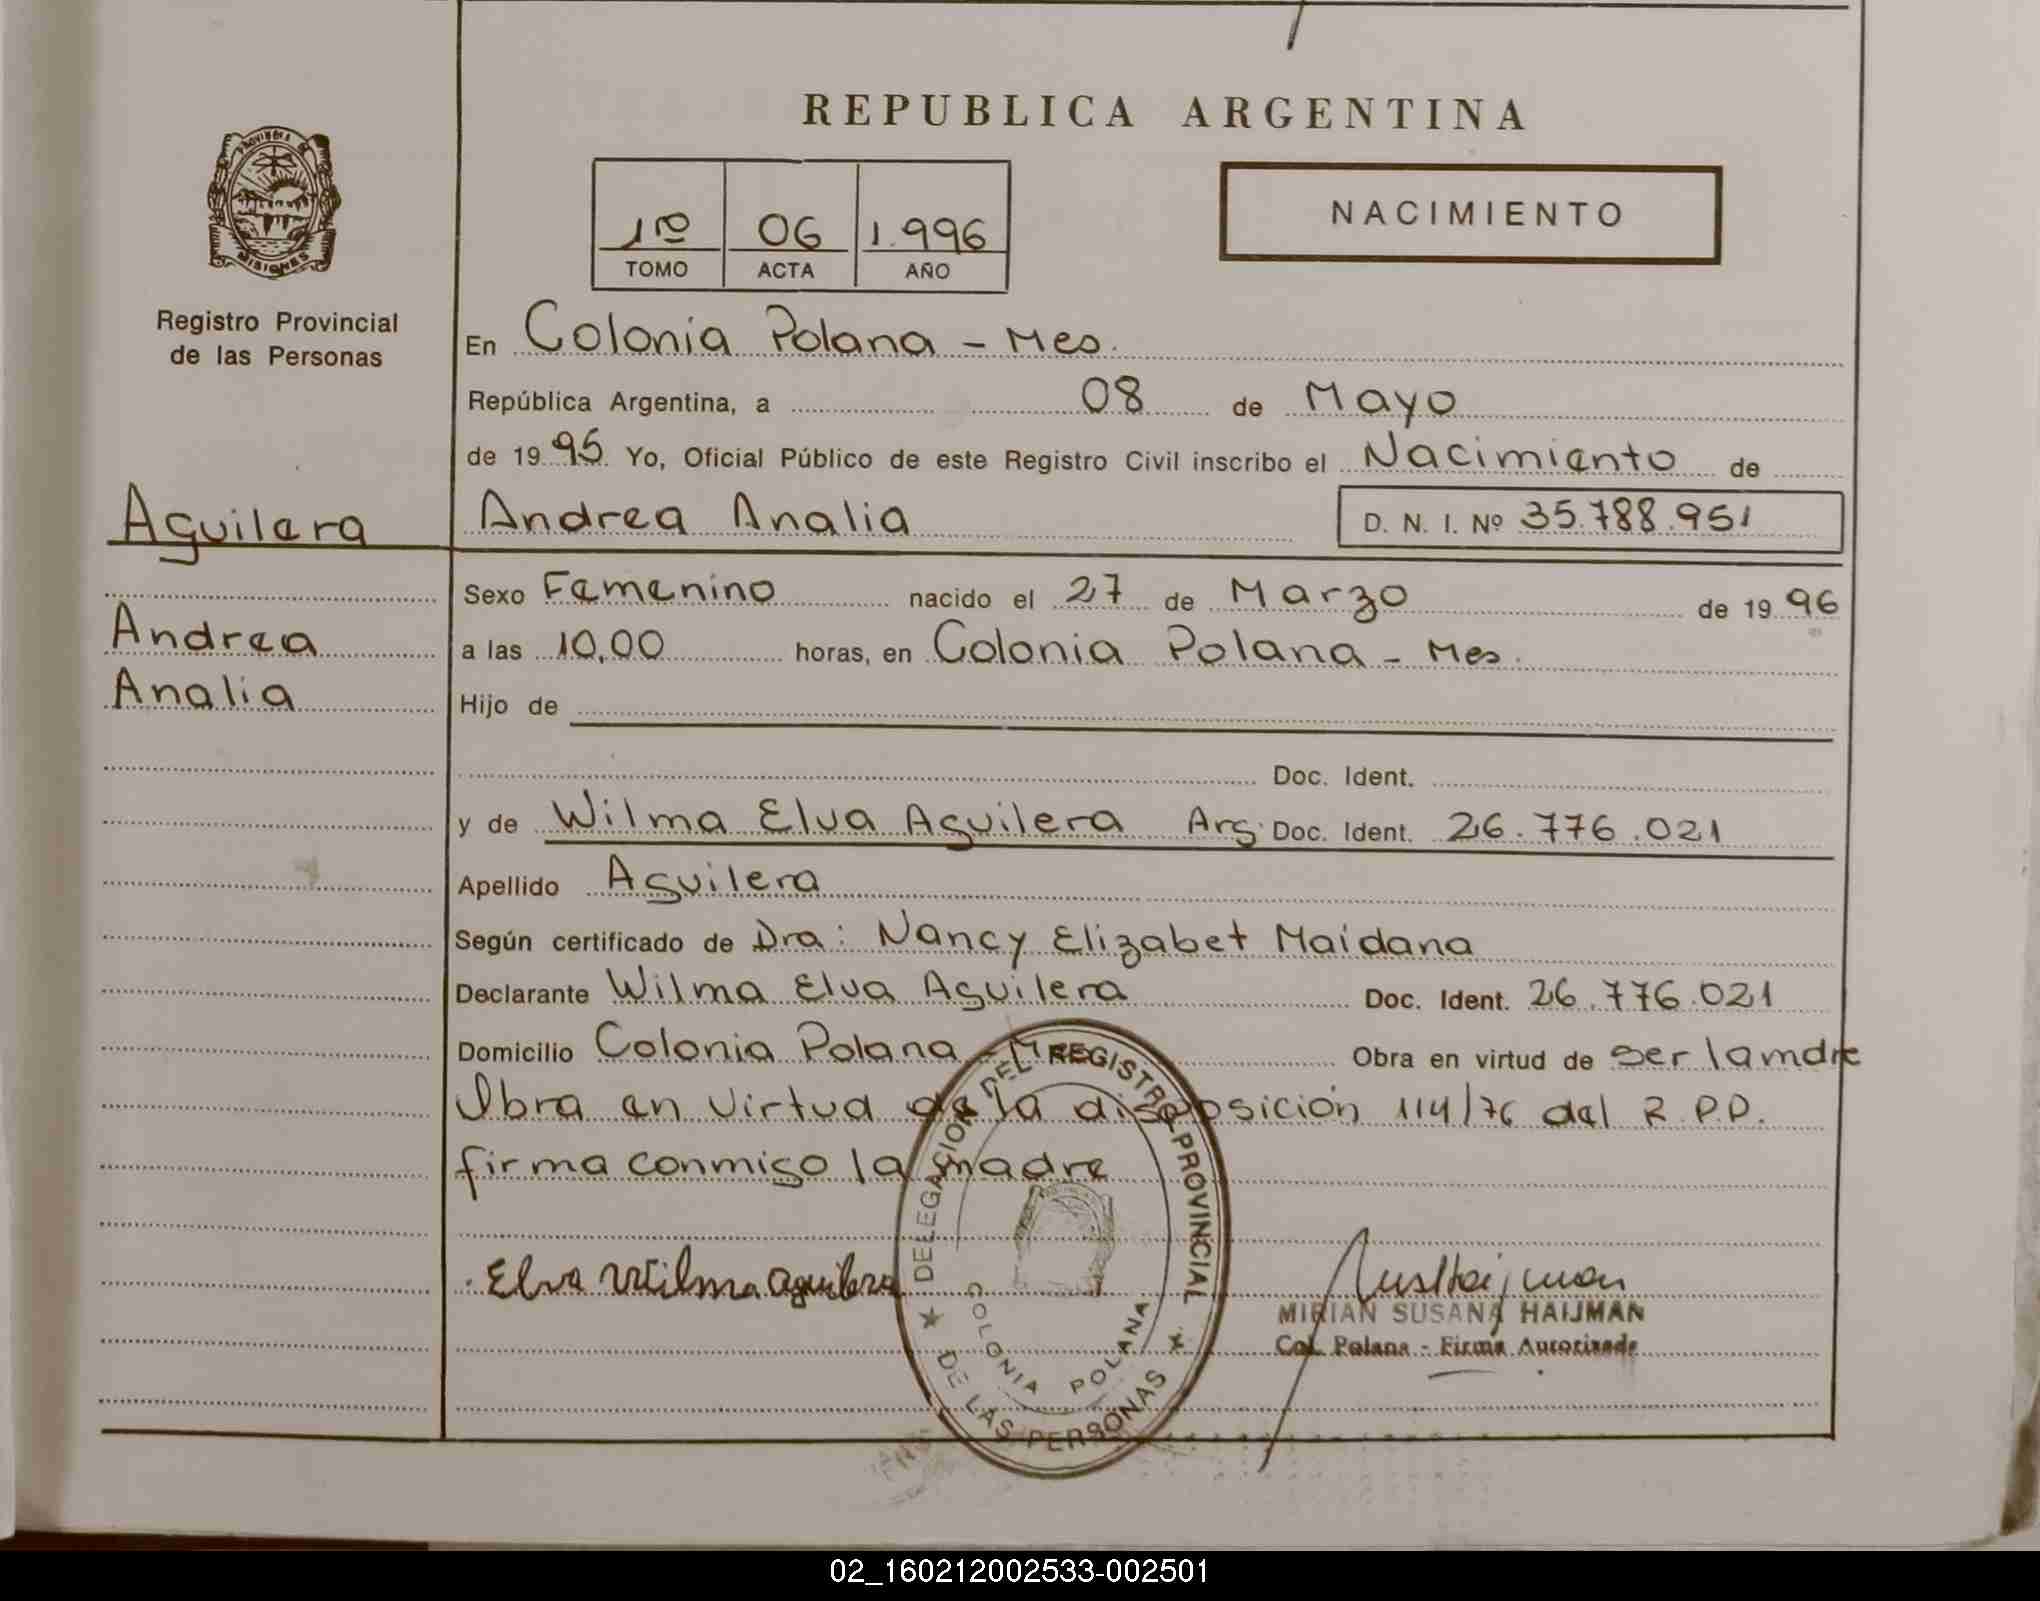 REPUBLICA ARGENTINA
PROVINCIA DE
MISIONES
Registro Provincial
de las Personas
1ro 06 1.996
TOMO ACTA AÑO
NACIMIENTO
En Colonia Polana - Mes.
República Argentina, a 08 de Mayo
de 19 95 Yo, Oficial Público de este Registro Civil inscribo el Nacimiento de
Aguilera Andrea Analia D. N. I. Nº 35.788.951
Sexo Femenino nacido el 27 de Marzo de 19 96
Andrea
a las 10,00 horas, en Colonia Polana - Mes.
Analia
Hijo de
Doc. Ident.
y de Wilma Elva Aguilera Arg. Doc. Ident. 26.776.021
Apellido Aguilera
Según certificado de Dra: Nancy Elizabet Maidana
Declarante Wilma Elva Aguilera Doc. Ident. 26.776.021
Domicilio Colonia Polana - Mes Obra en virtud de ser la mdre
Obra en virtud de la disposición 114/76 del R.P.P.
firma conmigo la madre
Elva Wilma Aguilera
DELEGACION DEL REGISTRO PROVINCIAL
DE LAS PERSONAS
COLONIA POLANA
MIRIAN SUSANA HAIJMAN
Col. Polana - Firma Autorizada
02_160212002533-002501